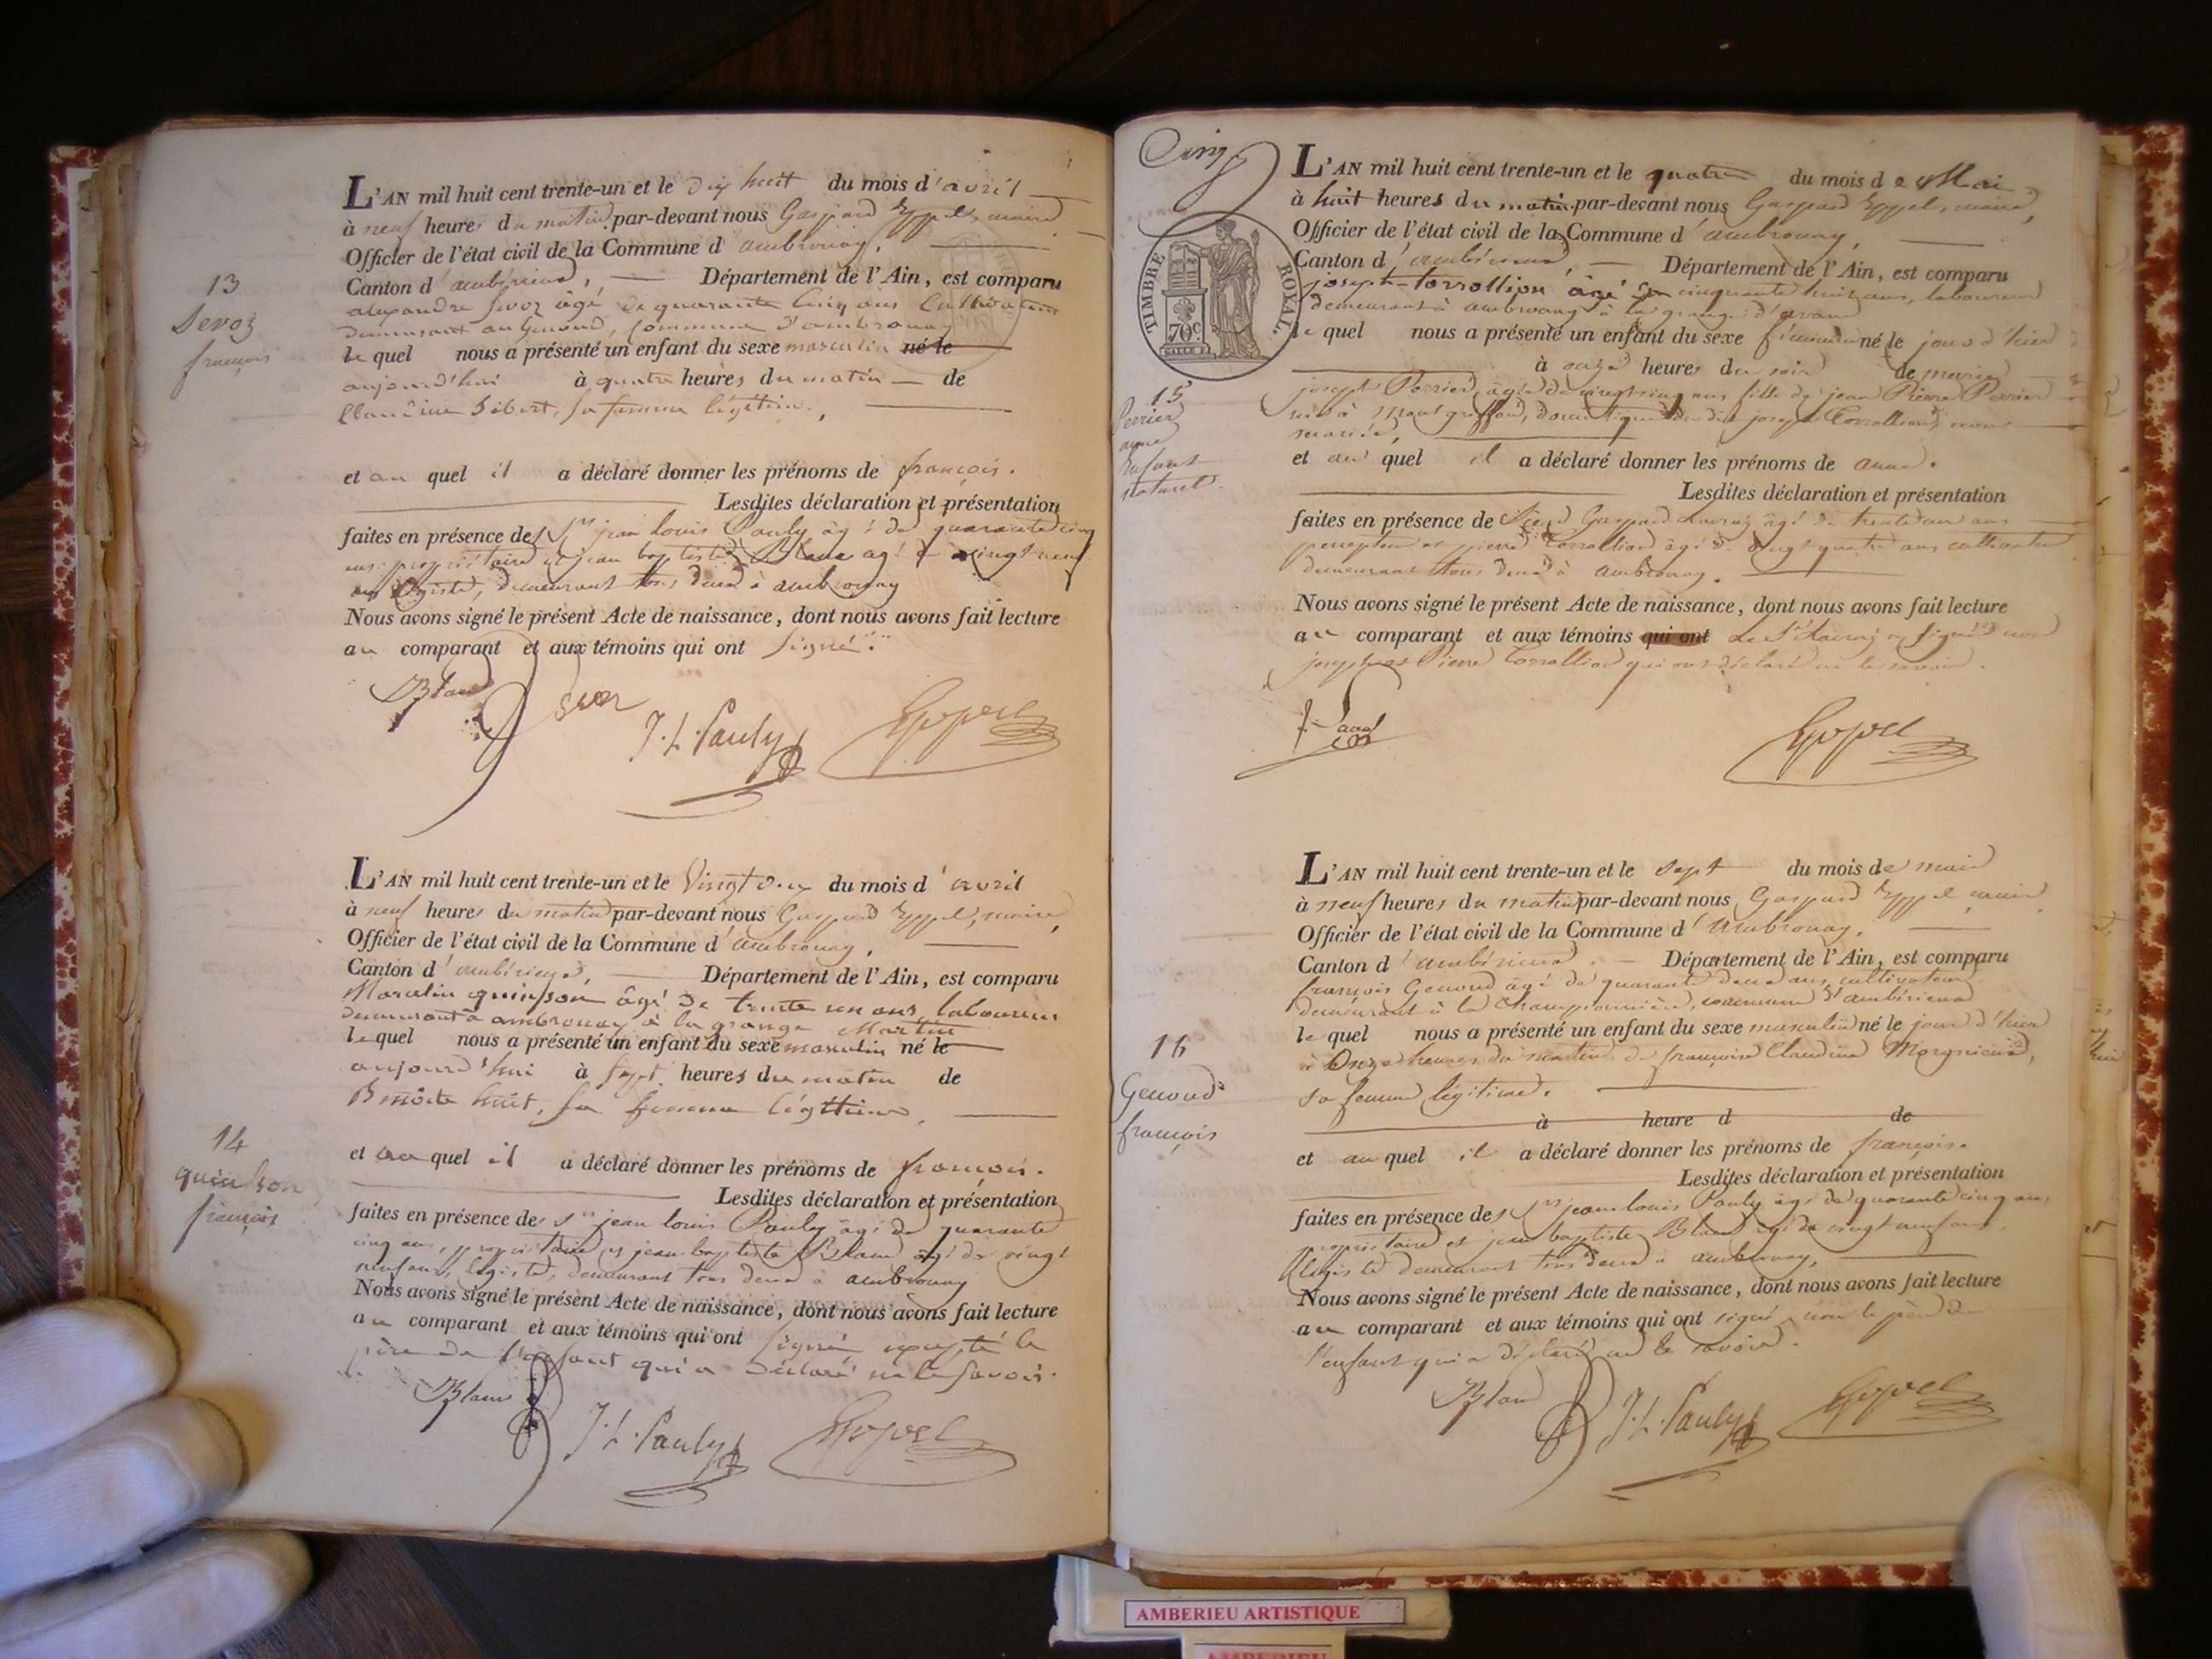 13
Sevoz
françois
L'AN mil huit cent trente-un et le dix huit du mois d'avril
à neuf heures du matin par-devant nous Gaspard Eppel, maire
Officier de l'état civil de la Commune d'ambronay,
Canton d'ambérieux, Département de l'Ain, est comparu
alexandre Sevoz âgé de quarante cinq ans Cultivateur
demeurant au Genoud, Commune d'ambronay
le quel nous a présenté un enfant du sexe masculin né le
aujourd'hui à quatre heures du matin de
Claudine Sibert, sa femme légitime,
et au quel il a déclaré donner les prénoms de françois.
Lesdites déclaration et présentation
faites en présence des Srs jean louis Pauly âgé de quarante cinq
ans propriétaire et jean baptiste Blanc agé de vingt neuf
ans légiste, demeurant tous deux à ambronay
Nous avons signé le présent Acte de naissance, dont nous avons fait lecture
au comparant et aux témoins qui ont signé.
Blanc Sevoz J. L. Pauly Eppel
14
quinson
françois
L'AN mil huit cent trente-un et le Vingt deux du mois d'avril
à neuf heures du matin par-devant nous Gaspard Eppel, maire,
Officier de l'état civil de la Commune d'ambronay,
Canton d'ambérieux, Département de l'Ain, est comparu
Marcelin quinson âgé de trente un ans, laboureur
demeurant à ambronay à la grange Martin
le quel nous a présenté un enfant du sexe masculin né le
aujourd'hui à sept heures du matin de
Benoite huit, sa femme légitime,
et au quel il a déclaré donner les prénoms de françois.
Lesdites déclaration et présentation
faites en présence des Srs jean louis Pauly âgé de quarante
cinq ans, propriétaire et jean baptiste Blanc âgé de vingt
neuf ans, légiste, demeurant tous deux à ambronay
Nous avons signé le présent Acte de naissance, dont nous avons fait lecture
au comparant et aux témoins qui ont signé excepté le
père de l'enfant qui a déclaré ne le savoir.
Blanc J. L. Pauly Eppel
Cinq
TIMBRE ROYAL.
70c.
15
Perrier
anne
Enfant
naturel.
L'AN mil huit cent trente-un et le quatre du mois de Mai
à huit heures du matin par-devant nous Gaspard Eppel, maire,
Officier de l'état civil de la Commune d'ambronay,
Canton d'ambérieux, Département de l'Ain, est comparu
joseph Corrollion âgé de cinquante huit ans, laboureur
demeurant à ambronay à la grange d'
le quel nous a présenté un enfant du sexe féminin né le jour d'hier
à onze heures du soir de marie
joseph Perrier âgée de vingt cinq ans fille de jean Pierre Perrier
née à Montgriffon, domestique du dit joseph Corrollion, non
mariée,
et au quel il a déclaré donner les prénoms de anne.
Lesdites déclaration et présentation
faites en présence de Sieur Gaspard âgé de trente ans
percepteur et pierre Corrollion âgé de vingt quatre ans cultivateur
demeurant tous deux à ambronay.
Nous avons signé le présent Acte de naissance, dont nous avons fait lecture
au comparant et aux témoins qui ont Le Sr a signé non
joseph et Pierre Corrollion qui ont déclaré ne le savoir.
Eppel
16
Genoud
françois
L'AN mil huit cent trente-un et le sept du mois de mai
à neuf heures du matin par-devant nous Gaspard Eppel maire
Officier de l'état civil de la Commune d'Ambronay,
Canton d'ambérieux. Département de l'Ain, est comparu
françois Genoud âgé de quarante deux ans, cultivateur
demeurant à la Championnière, commune d'ambérieux
le quel nous a présenté un enfant du sexe masculin né le jour d'hier
à Onze heures du matin de françoise Claudine Morgnieux,
sa femme légitime.
à heure d de
et au quel il a déclaré donner les prénoms de françois.
Lesdites déclaration et présentation
faites en présence des Srs jean louis Pauly âgé de quarante cinq ans,
propriétaire et jean baptiste Blanc âgé de vingt neuf ans
légiste demeurant tous deux à ambronay,
Nous avons signé le présent Acte de naissance, dont nous avons fait lecture
au comparant et aux témoins qui ont signé, non le père de
l'enfant qui a déclaré ne le savoir.
Blanc J. L. Pauly Eppel
AMBERIEU ARTISTIQUE
AMBERIEU